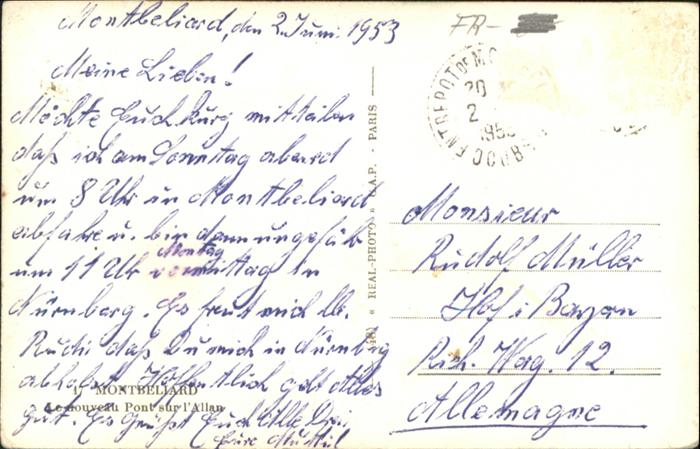 Montbeliard, den 2. Juni 1953
Meine Lieben!
Möchte Euch kurz mitteilen
daß ich am Sonntag abend
um 8 Uhr in Montbeliard
abfahre u. bin dann ungefähr
Montag
um 11 Uhr vormittag in
Nürnberg. Es freut mich lb.
Rudi daß Du mich in Nürnberg
abholst. Hoffentlich geht Alles
gut. Es grüßt Euch Alle Drei
Eure Mutti
17 MONTBELIARD
Le nouveau Pont sur l'Allan
« REAL-PHOTO » A.P. PARIS
FR-
ENTREPOT DE MO
20
2
1953
DOUBS
Monsieur
Rudolf Müller
Hof i Bayern
Rich. Wag. 12.
Allemagne